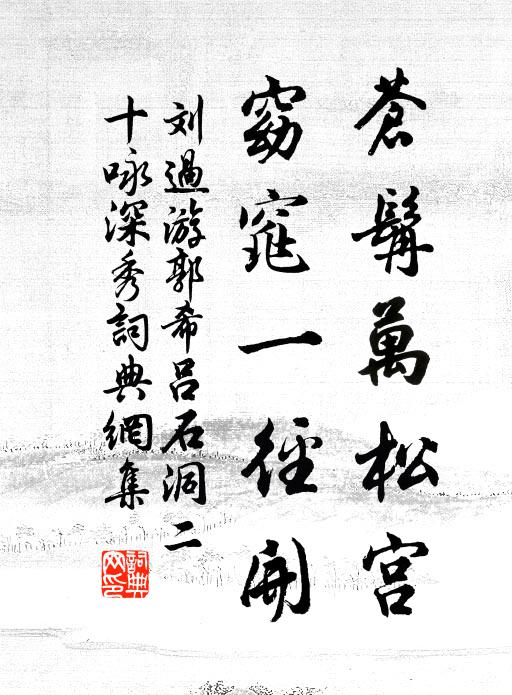 蒼髯萬松宫
窈窕一徑開
刘過游郭希吕石洞二
十咏深秀詞典網集
詞典網印